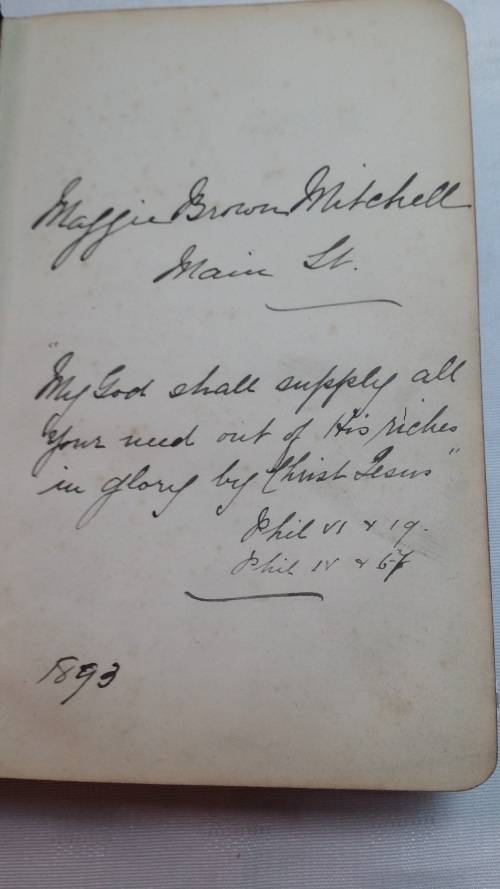 Maggie Brown Mitchell
Main St.
"My God shall supply all
Your need out of His riches
in glory by Christ Jesus"
Phil VI & 19.
Phil IV & 6-7
1893